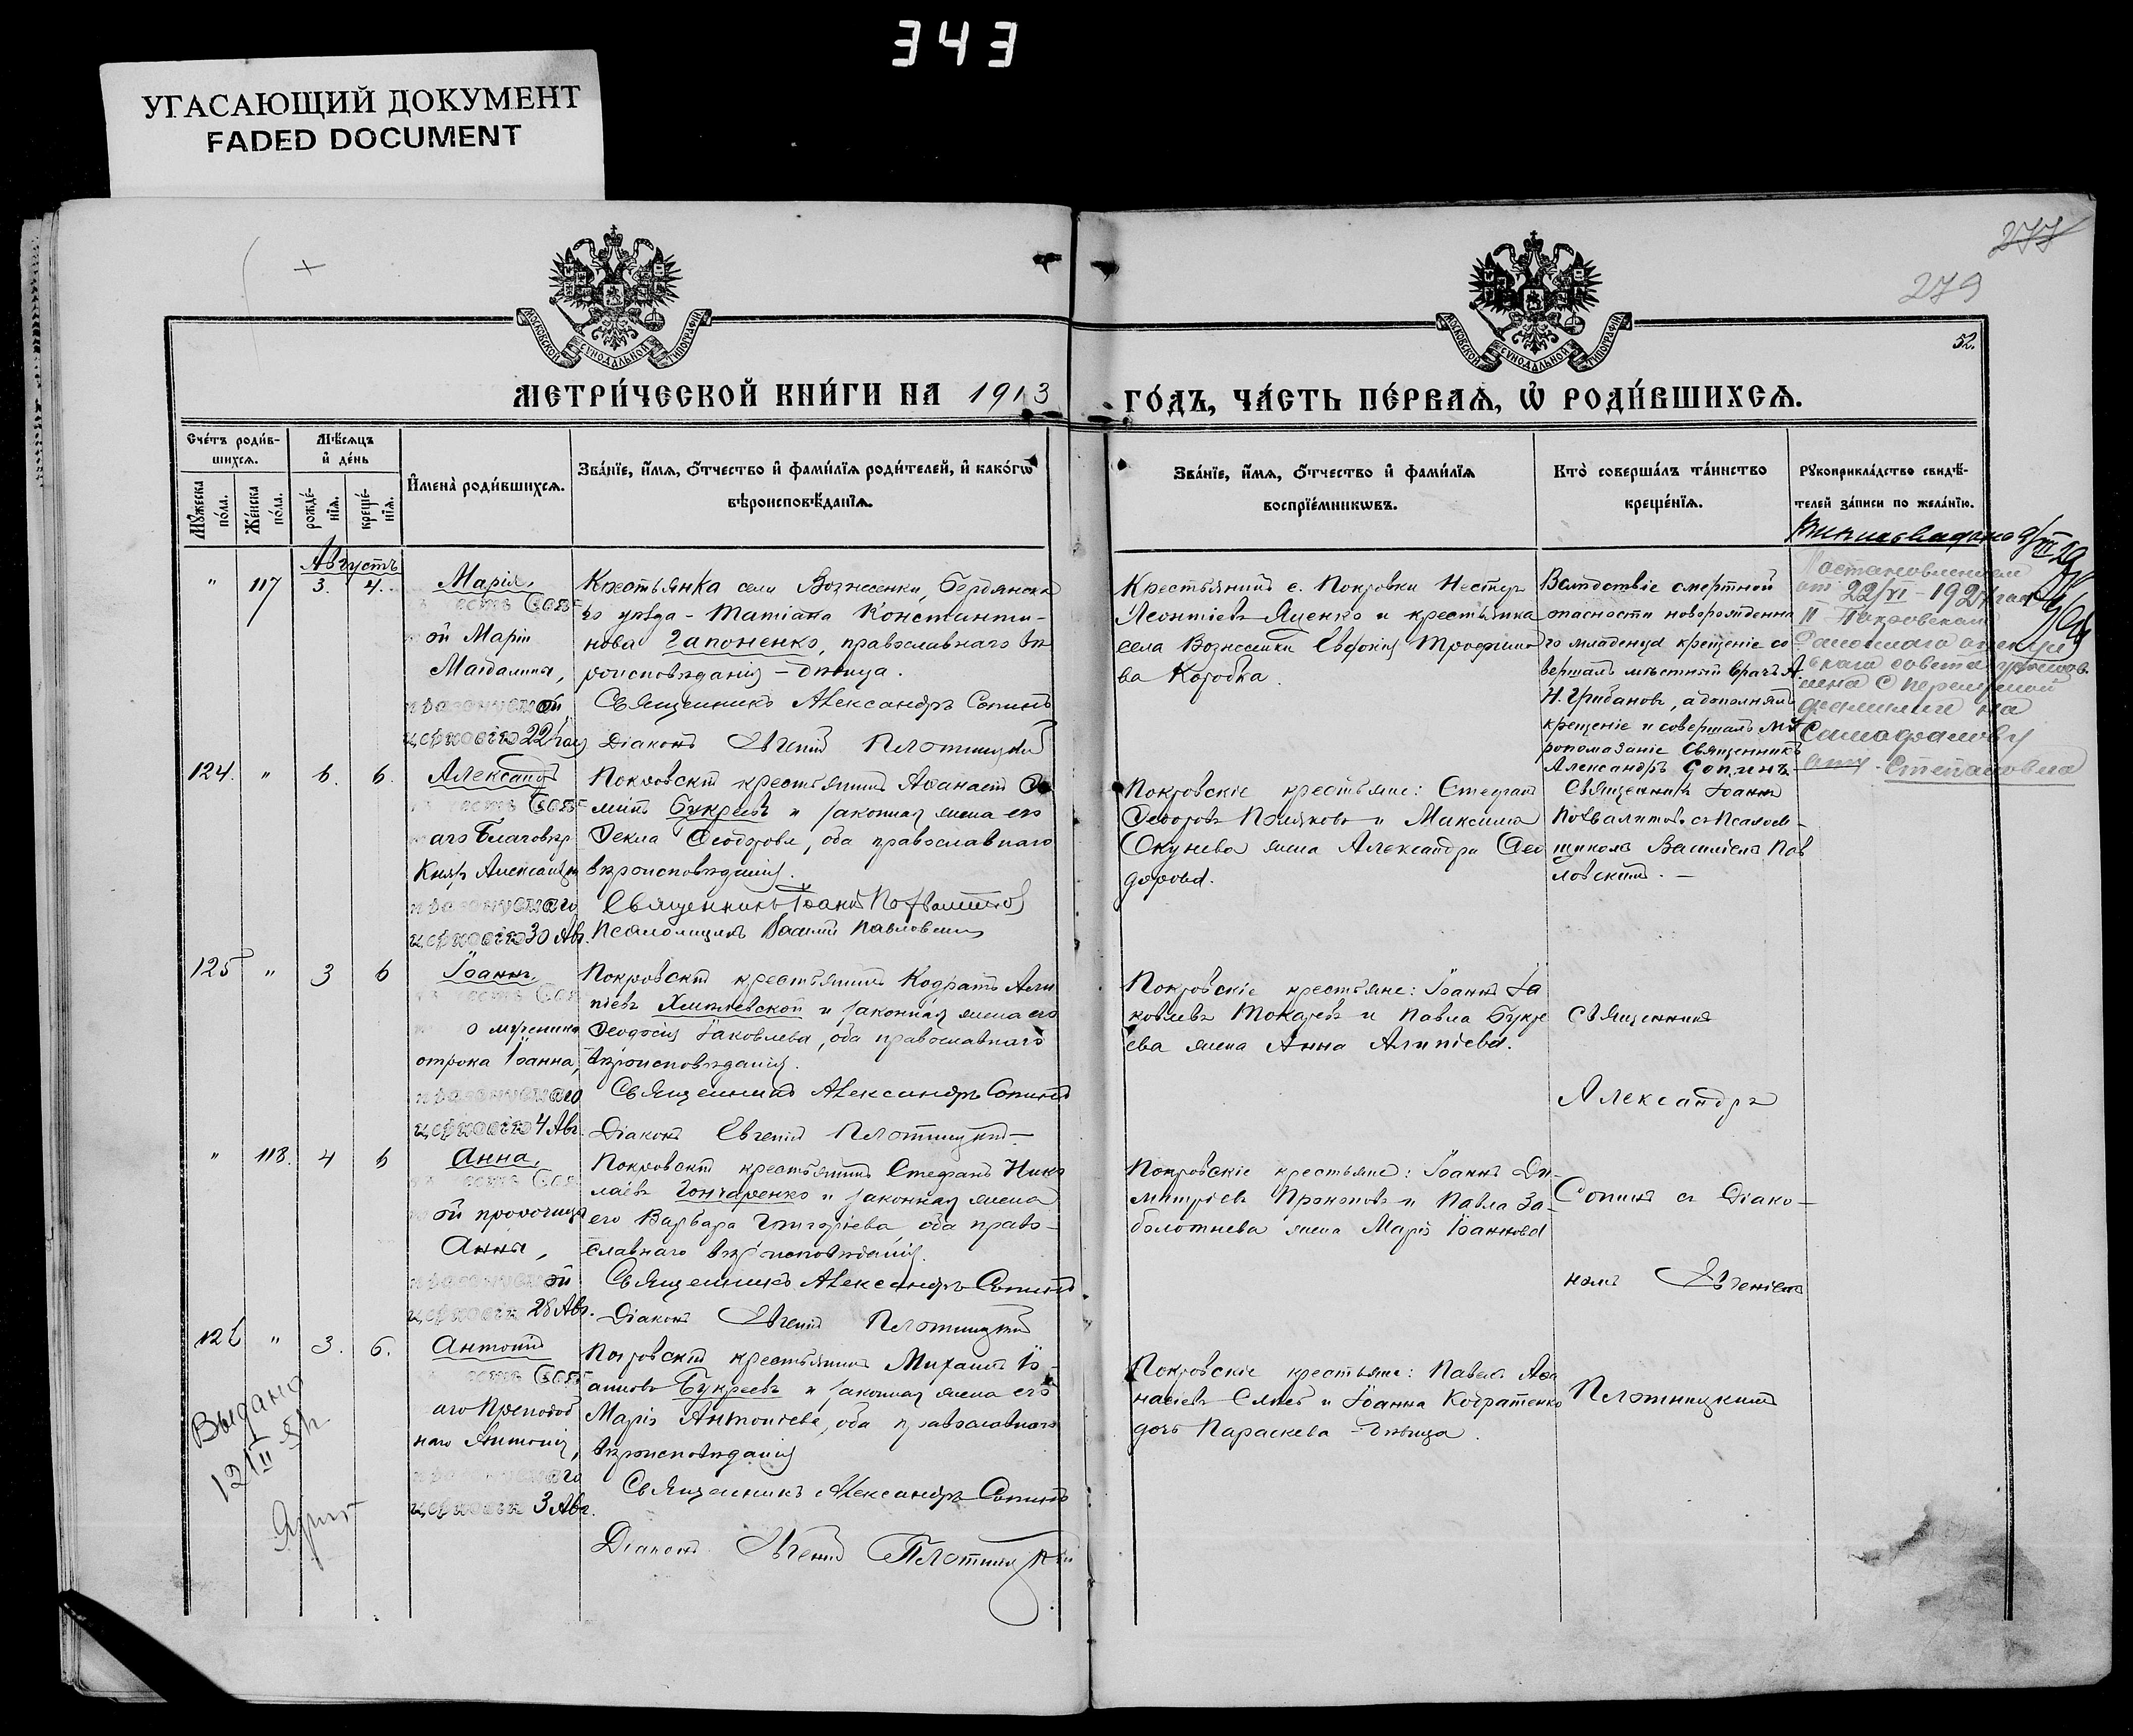 343
УГАСАЮЩИЙ ДОКУМЕНТ
FADED DOCUMENT
277
279
52.
МОСКОВСКОЙ СУНОДАЛЬНОЙ ТИПОГРАФІИ
МОСКОВСКОЙ СУНОДАЛЬНОЙ ТИПОГРАФІИ
МЕТРИ́ЧЕСКОЙ КНИ́ГИ НА 1913
ГО́ДЪ, ЧА́СТЬ ПЕ́РВАѦ, Ѡ҆ РОДИ́ВШИХСѦ.
Сче́тъ роди́в-
шихсѧ.
Мѹ́жеска по́ла.
Же́нска по́ла.
Мѣ́сѧцъ
и҆ де́нь
рожде́-
нїѧ.
креще́-
нїѧ.
И҆мена̀ роди́вшихсѧ.
Зва́нїе, и҆́мѧ, ѻ҆́тчество и҆ фами́лїѧ роди́телей, и҆ како́гѡ
вѣроисповѣ́данїѧ.
Зва́нїе, и҆́мѧ, ѻ҆́тчество и҆ фами́лїѧ
воспрїе́мникѡвъ.
Кто̀ соверша́лъ та́инство
креще́нїѧ.
Рѹкоприкла́дство свидѣ́-
телей за́писи по жела́нїю.
Августъ
" 117 3. 4.
Марія,
въ честь Свят
ой Маріи
Магдалины,
празднуемой
церковію 22 Іюля
Крестьянка села Вознесенки, Бердянска
го уѣзда - Татіана Константи-
нова Гапоненко, православнаго вѣ
роисповѣданія - дѣвица.
Священникъ Александръ Сопинъ
Діаконъ Евгеній Плотницкій
Крестьянинъ с. Покровки Нестеръ
Леонтіевъ Яценко и крестьянка
села Вознесенки Евфокія Трофимо
ва Коробка.
Вслѣдствіе смертной
опасности новорожденна
го младенца крещеніе со
вершалъ мѣстный врачъ А.
Н. Грибановъ, а дополнялъ
крещеніе и совершалъ Мѵ
ропомазаніе Священникъ
Александръ Сопинъ
Постановлением
от 22/VI - 1927 года
II Покровскаго
совета
с переменой
фамилии на
Степановна
124. " 6. 6.
Александръ
въ честь Свят
аго Благовѣр.
Князя Александра
празднуемаго
церковію 30 Авг.
Покровскій крестьянинъ Аѳанасій
Букреевъ и законная жена его
Ѳекла Ѳеодорова, оба православнаго
вѣроисповѣданія.
Священникъ Іоаннъ Похвалитовъ
Псаломщикъ Василій Павловскій
Покровскіе крестьяне: Стефанъ
Ѳеодоровъ Поляковъ и Максима
Окунева жена Александра Ѳео
дорова.
Священникъ Іоаннъ
Похвалитовъ съ Псалом-
щикомъ Василіемъ Пав
ловскимъ. -
125 " 3 6
Іоаннъ,
въ честь Свят
о мученика
отрока Іоанна,
празднуемаго
церковію 4 Авг.
Покровскій крестьянинъ Кодратъ Али
піевъ Хмѣлевской и законная жена его
Ѳеодосія Іаковлева, оба православнаго
вѣроисповѣданія.
Священникъ Александръ Сопинъ
Діаконъ Евгеній Плотницкій
Покровскіе крестьяне: Іоаннъ Іа
ковлевъ Токаревъ и Павла Букре
ева жена Анна Алипіева.
Священникъ
Александръ
" 118. 4 6
Анна,
въ честь Свят
ой пророчицы
Анны,
празднуемой
церковію 28 Авг.
Покровскій крестьянинъ Стефанъ Нико
лаевъ Гончаренко и законная жена
его Варвара Григоріева, оба право-
славнаго вѣроисповѣданія.
Священникъ Александръ Сопинъ
Діаконъ Евгеній Плотницкій
Покровскіе крестьяне: Іоаннъ Ди
митріевъ Прокоповъ и Павла За-
болотнева жена Марія Іоаннова
Сопинъ съ Діако-
номъ Евгеніемъ
126 " 3. 6.
Антоній
въ честь Свят
аго Преподоб
наго Антонія,
празднуемаго
церковію 3 Авг.
Покровскій крестьянинъ Михаилъ Іо-
анновъ Букреевъ и законная жена его
Марія Антоніева, оба православнаго
вѣроисповѣданія
Священникъ Александръ Сопинъ
Діаконъ Евгеній Плотницкій
Покровскіе крестьяне: Павелъ Аѳа
насіевъ и Іоанна Кодратенко
дочь Параскева - дѣвица.
Плотницкимъ
Выдано
12/II